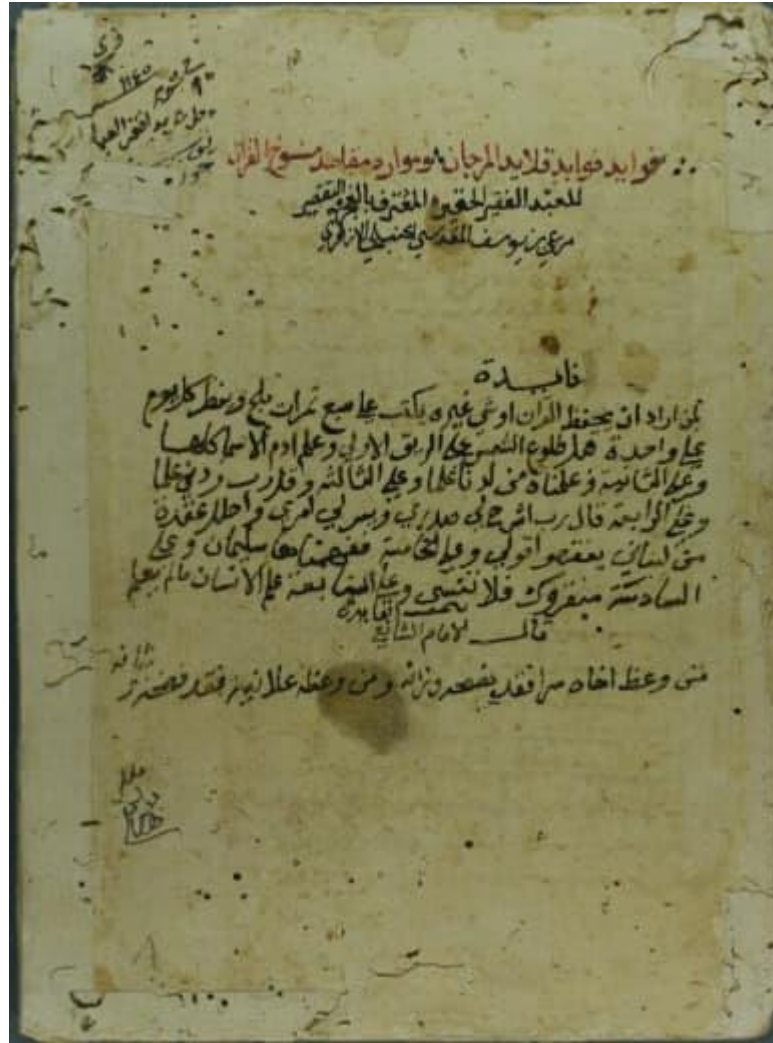 فوايد قلايد المرجان وموارد مقاصد منسوخ القران
للعبد الفقير الحقير المعترف بالعجز والتقصير
مرعي بن يوسف المقدسي الحنبلي الازهري
فايدة
لمن اراد ان يحفظ القران او شي غيره يكتب على سبع تمرات ويفطر كل يوم
على واحدة قبل طلوع الشمس على الريق الاولي وعلم ادم الاسما كلها
وعلى الثانية وعلمناه من لدنا علما وعلى الثالثه وقل رب زدني علما
وعلى الرابعة قال رب اشرح لي صدري ويسر لي امري واحلل عقدة
من لساني يفقهوا قولي وعلى الخامسة ففهمناها سليمان وعلى
السادسة سنقرؤك فلا تنسى وعلى السابعة علم الانسان مالم يعلم
قال الامام الشافعي
من وعظ اخاه سرا فقد نصحه وزانه ومن وعظه علانية فقد فضحه
١١٤٥